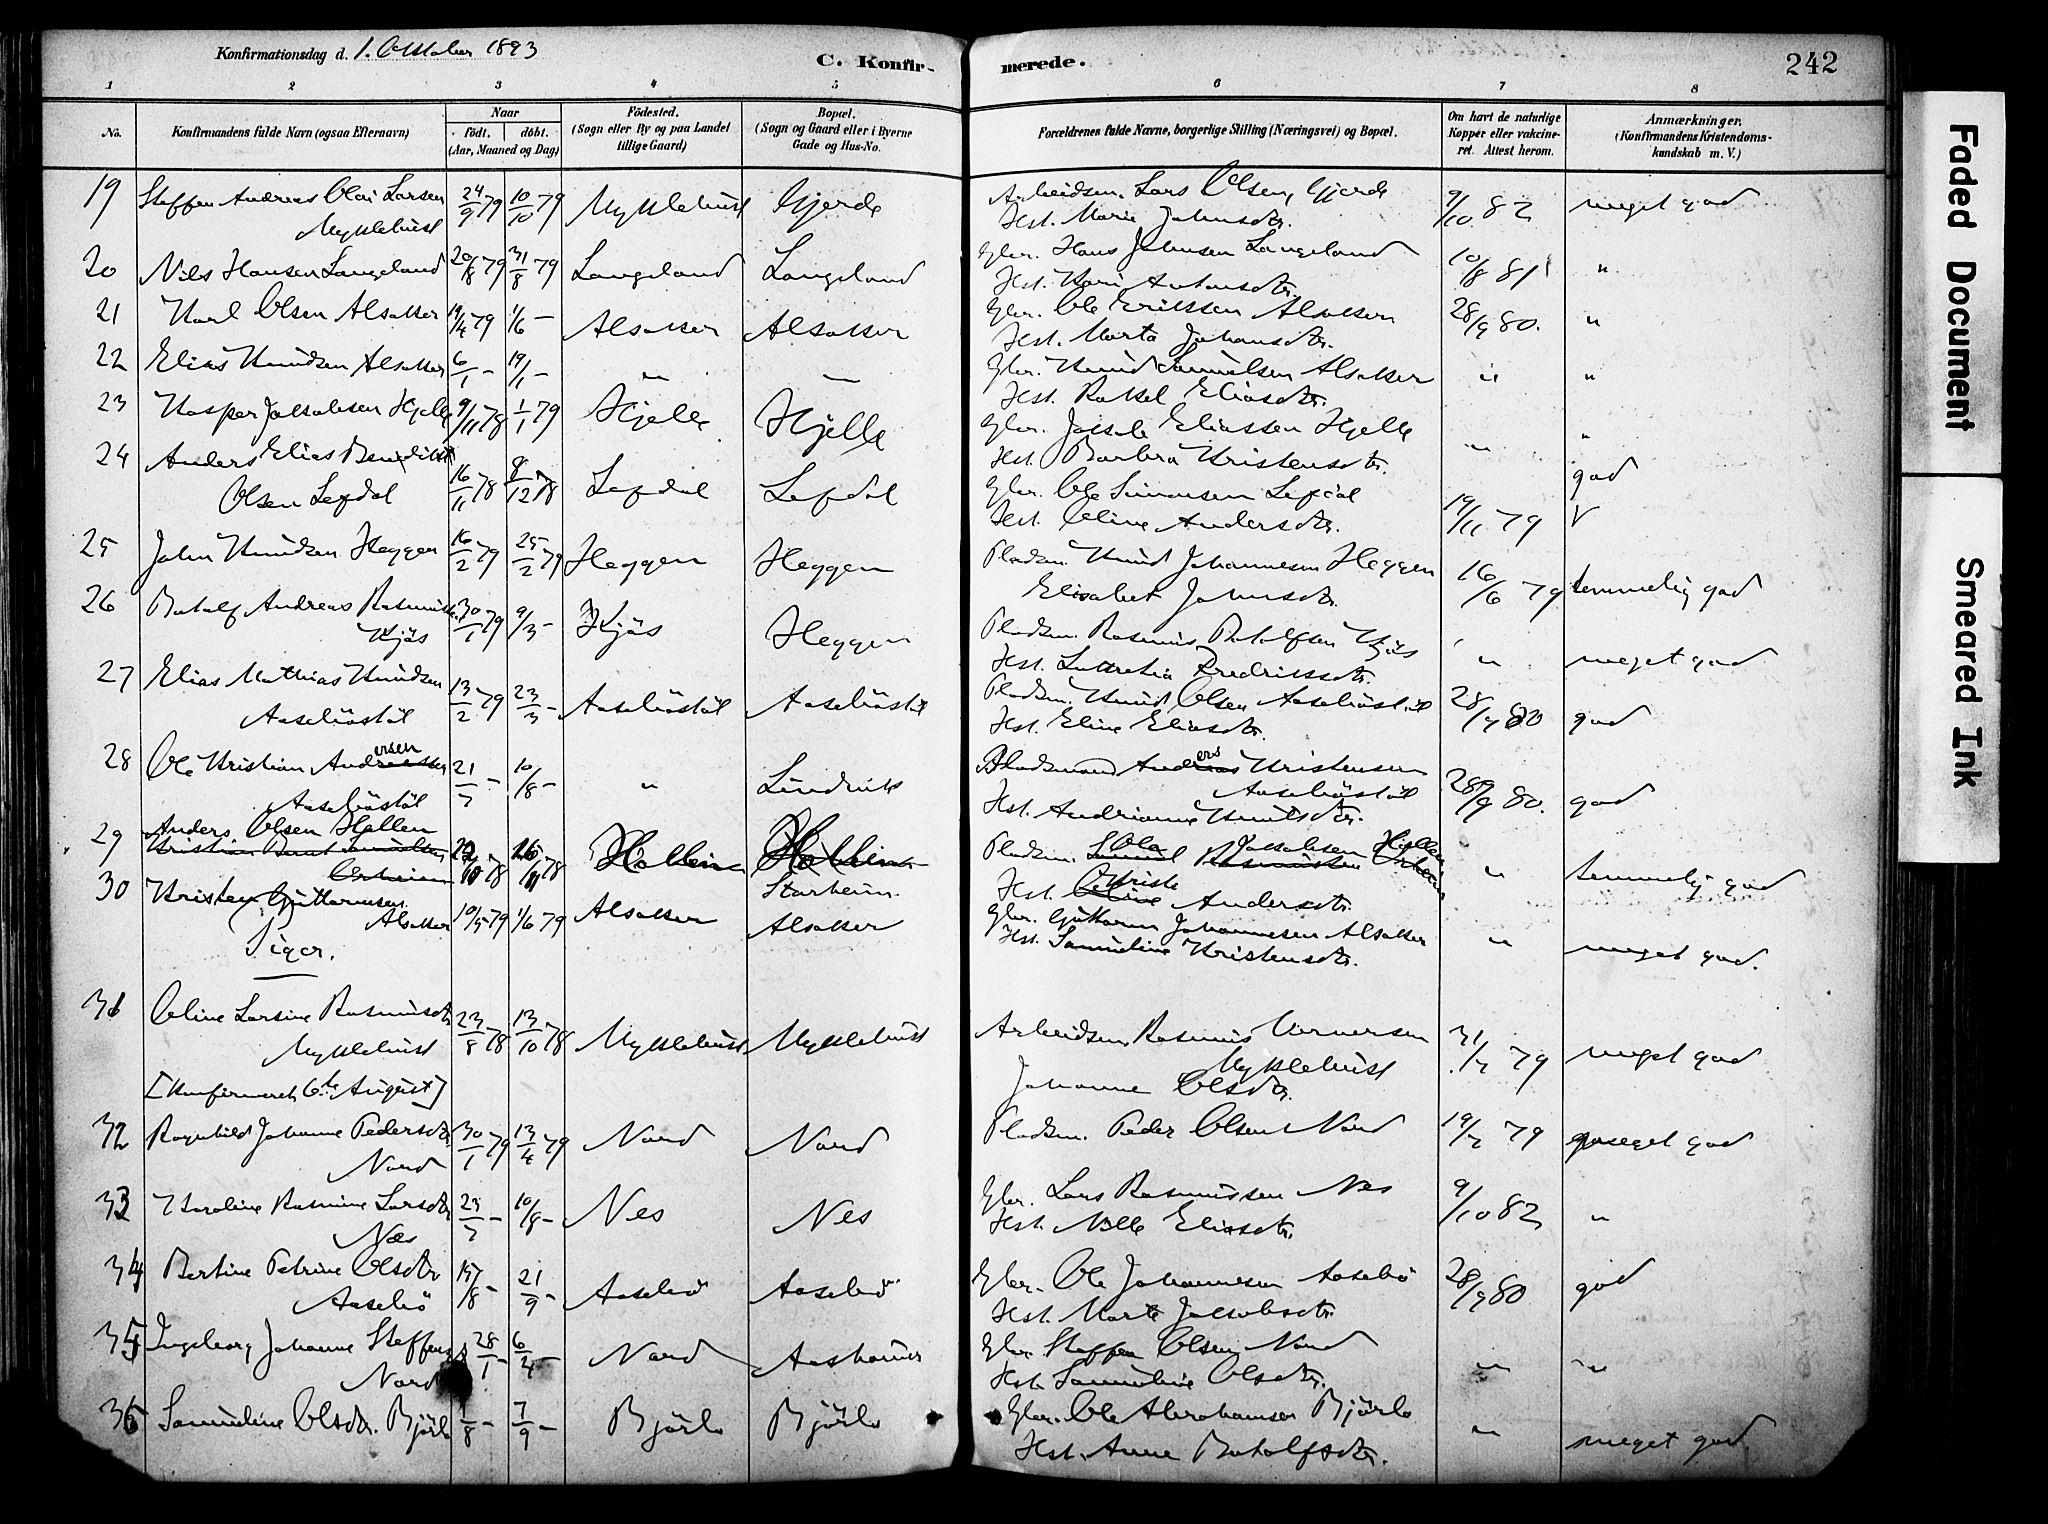 Konfirmationsdag d. 1. Oktober 1893
C. Konfir-
merede.
242
1 2 3 4 5 6 7 8
No.
Konfirmandens fulde Navn (ogsaa Efternavn)
Naar
födt. döbt.
(Aar, Maaned og Dag)
Födested.
(Sogn eller By og paa Landet
tillige Gaard)
Bopæl.
(Sogn og Gaard eller i Byerne
Gade og Hus-No.
Forældrenes fulde Navne, borgerlige Stilling (Næringsvei) og Bopæl.
Om havt de naturlige
Kopper eller vakcine-
ret. Attest herom.
Anmærkninger.
(Konfirmandens Kristendoms-
kundskab m. V.)
19 Steffen Andreas Olai Larsen 24/9 79 10/10 79 Myklebust Gjerde Arbeidsm. Lars Olsen, Gjerde 9/10 82 meget god
Myklebust Hst. Marie Johnsdtr.
20 Nils Hansen Langeland 20/8 79 31/8 79 Langeland Langeland Gbr. Hans Johnsen Langeland 10/8 81 "
Hst. Kari Antonsdtr.
21 Karl Olsen Alsaker 19/4 79 1/6 – Alsaker Alsaker Gbr. Ole Eriksen Alsaker 28/9 80. "
Hst. Marta Johansdtr.
22 Elias Knudsen Alsaker 6/1 – 19/1 – " " Gbr. Knud Samuelsen Alsaker " "
Hst. Rakel Eliasdtr.
23 Kasper Jakobsen Hjelle 9/11 78 1/1 79 Hjelle Hjelle Gbr. Jakob Eliassen Hjelle " "
Hst. Barbra Kristensdtr.
24 Anders Elias Benedikt 16/11 78 8/12 78 Lefdal Lefdal Gbr. Ole Simonsen Lefdal 19/11 79 god
Olsen Lefdal Hst. Oline Andersdtr. V
25 John Knudsen Heggen 16/2 79 25/2 79 Heggen Heggen Pladsm. Knud Johannesen Heggen 16/6 79 temmelig god
Elisabet Johnsdtr.
26 Botolf Andreas Rasmus. 30/1 79 9/3 – Kjös Heggen Pladsm. Rasmus Botolfsen Kjös " meget god
Kjös Hst. Lukretia Fredriksdtr.
27 Elias Mathias Knudsen 13/2 79 23/3 – Aaseböstöl Aaseböstöl Pladsm. Knud Olsen Aaseböstöl 28/9 80 god
Aaseböstöl Hst. Eline Eliasdtr.
28 Ole Kristian Andreassen ersen 21/7 – 10/8 – " Lindvik Pladsmand Andreas ers Kristensen 28/9 80. god
Aaseböstöl Aaseböstöl
Hst. Andrianne Knutsdtr.
29 Anders Olsen Hjellen 10 78 11 78 Hallein Pladsm. Ole Jakobsen Hjellen " temmelig god
Kristian Bernt Samuelsen Starheim. Samuel Rasmussen
Hst. Kriste Oline Andersdtr.
30 Kristen Guttormsen 10/5 79 1/6 79 Alsaker Alsaker Gbr. Guttorm Johannesen Alsaker " meget god.
Alsaker Hst. Samueline Kristensdtr.
Piger.
31 Oline Larsine Rasmusdtr 23/8 78 13/10 78 Myklebust Myklebust Arbeidsm. Rasmus Vernersen 31/7 79 meget god
Myklebust Myklebust
[Konfirmeret 6te August] Johanne Olsdtr.
32 Ragnhild Johanne Pedersdtr 30/1 79 13/4 79 Nord Nord Pladsm. Peder Olsen Nord 19/7 79 meget god
Nord
33 Karoline Rasmine Larsdtr 23/7 – 10/8 – Nes Nes Gbr. Lars Rasmussen Nes 9/10 82 "
Nes Hst. Nille Eliasdtr.
34 Bertine Petrine Olsdtr 15/8 – 21/9 – Aasebö Aasebö Gbr. Ole Johannesen Aasebö 28/9 80 god
Aasebö Hst. Marte Jakobsdtr.
35 Ingeborg Johanne Steffens 28/1 – 6/4 – Nord Aashamer Gbr. Steffen Olsen Nord " "
Nord Hst. Samueline Olsdtr.
36 Samueline Olsdtr. Björlo 1/8 – 7/9 – Björlo Björlo Gbr. Ole Abrahamsen Björlo " meget god
Hst. Anne Botolfsdtr.
Faded Document
Smeared Ink